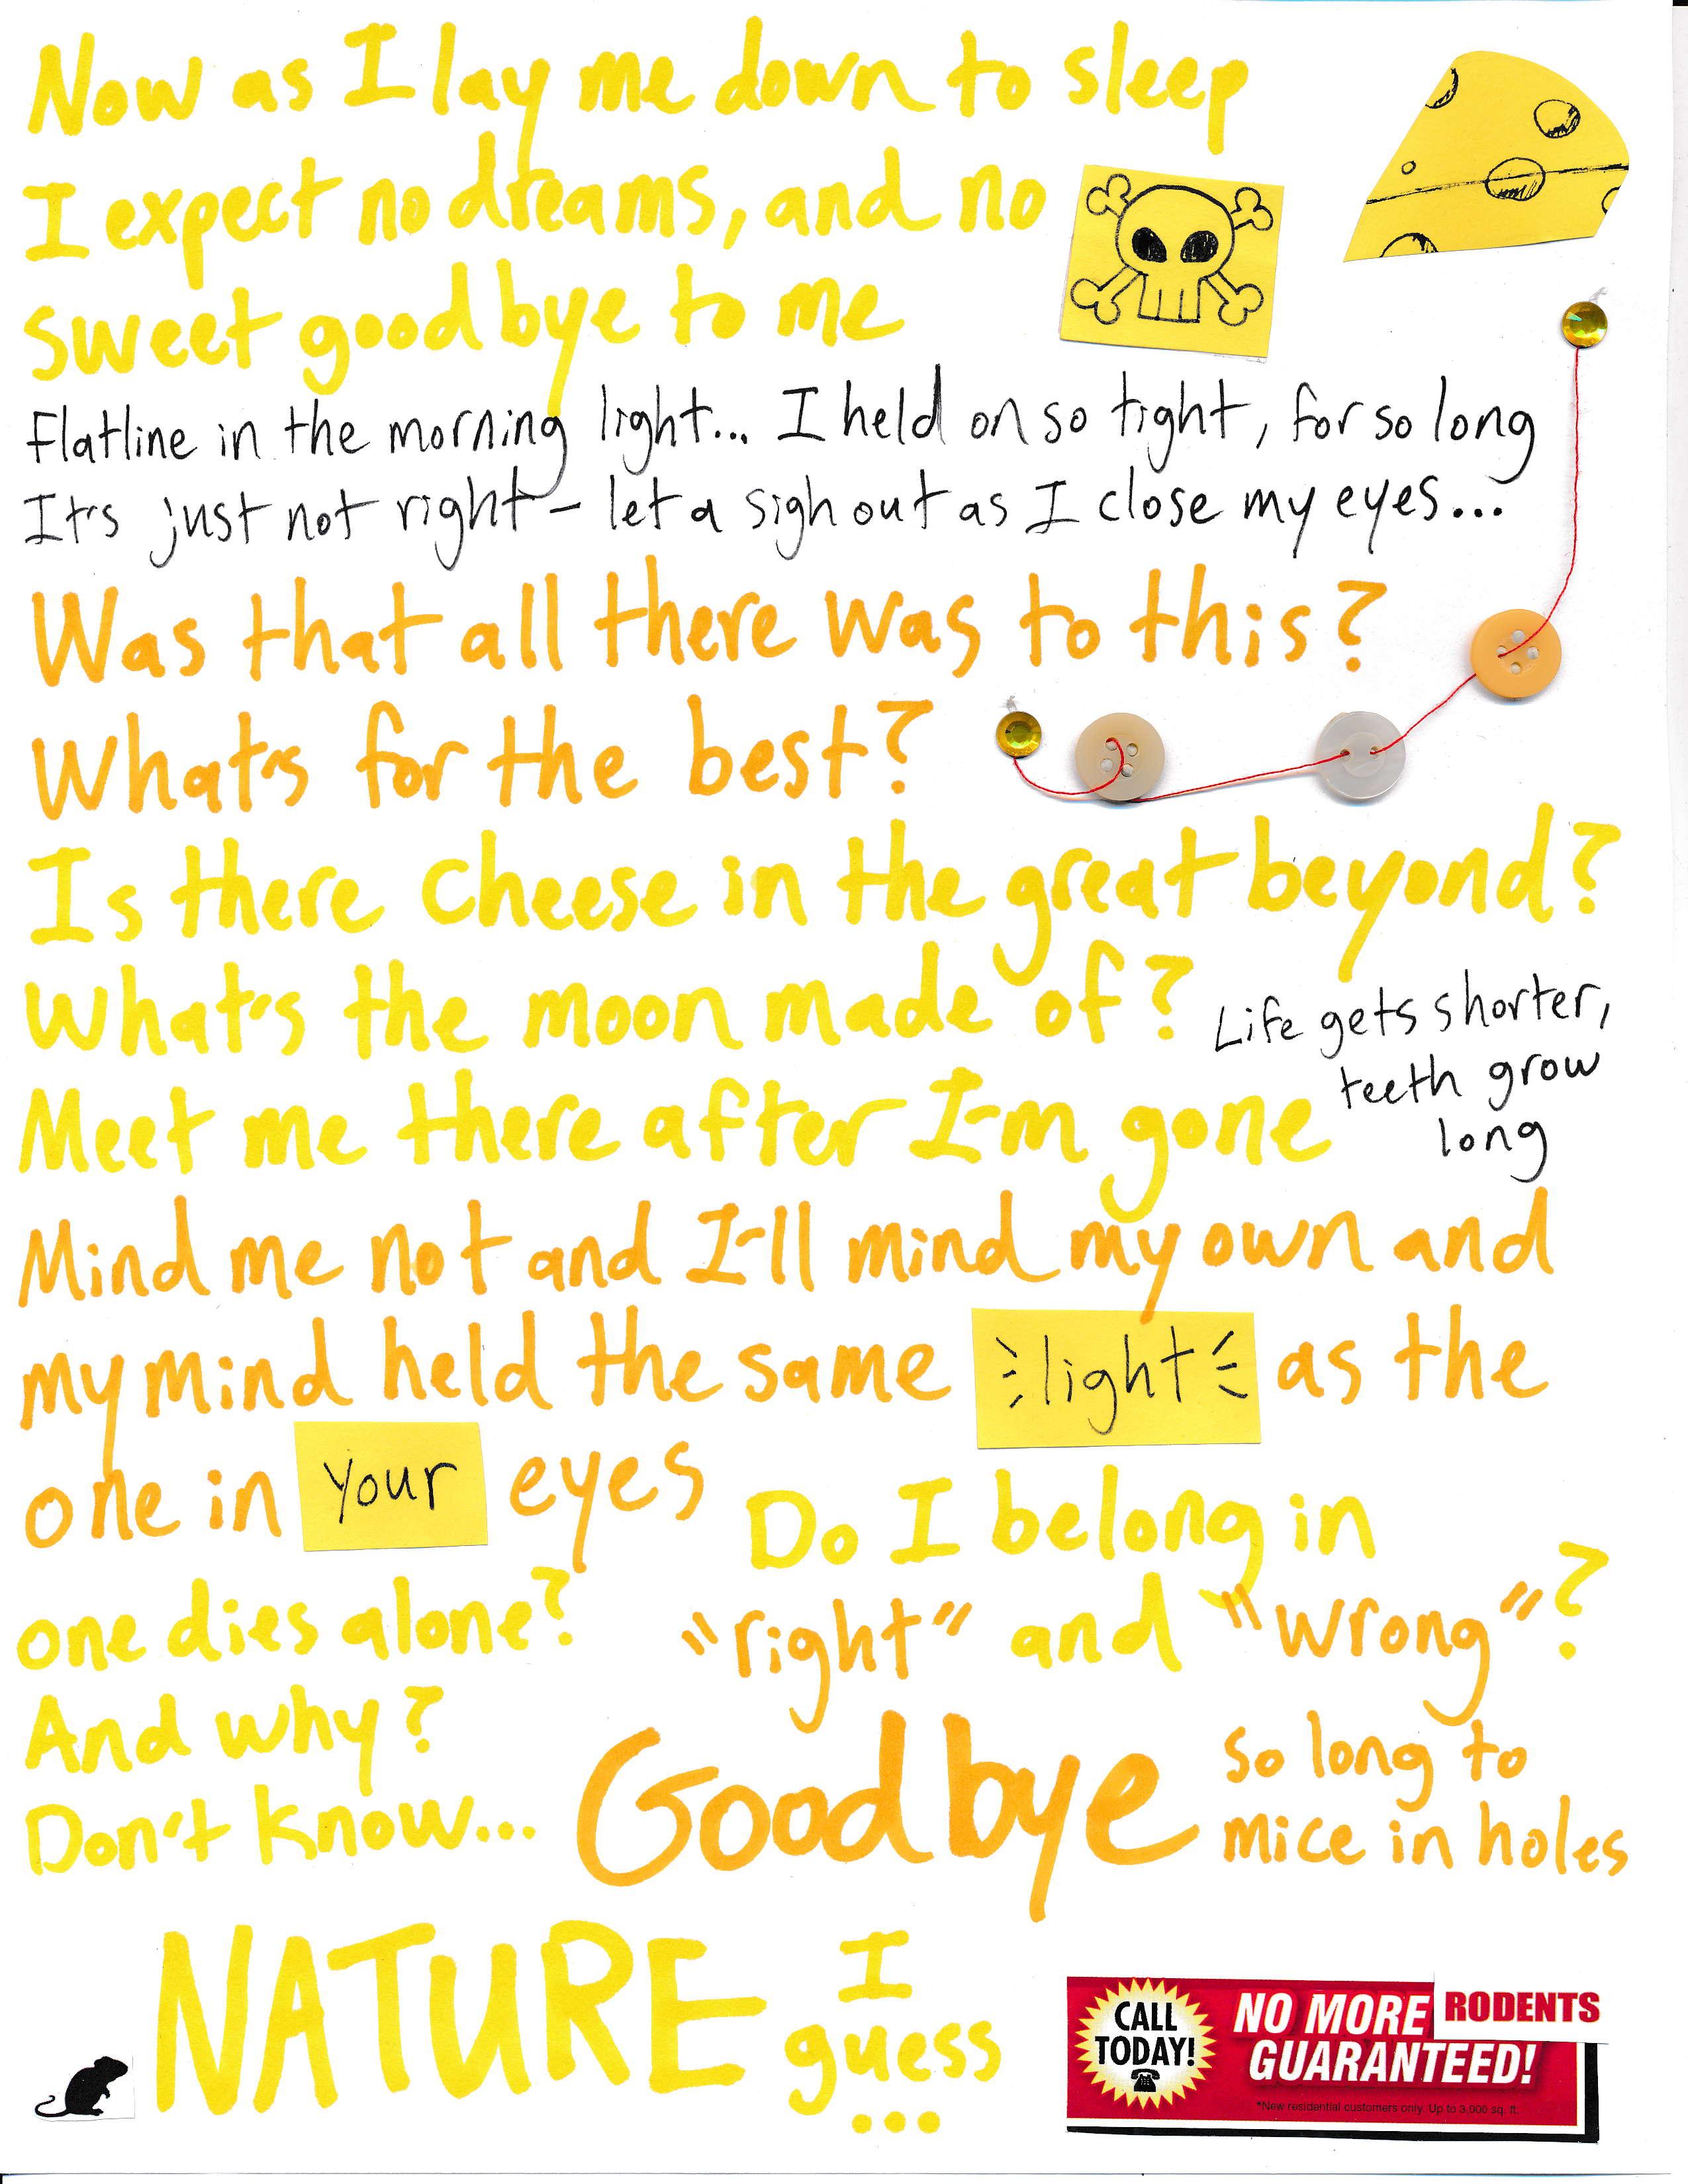 Now as I lay me down to sleep
I expect no dreams, and no
sweet goodbye to me
Flatline in the morning light... I held on so tight, for so long
It's just not right - let a sigh out as I close my eyes...
Was that all there was to this?
What's for the best?
Is there cheese in the great beyond?
What's the moon made of?
Life gets shorter,
teeth grow
long
Meet me there after I'm gone
Mind me not and I'll mind my own and
my mind held the same light as the
one in your eyes
Do I belong in
"right" and "wrong"?
one dies alone?
And why?
Don't know...
Goodbye
so long to
mice in holes
NATURE
I
guess
...
CALL
TODAY!
NO MORE RODENTS
GUARANTEED!
*New residential customers only. Up to 3,000 sq. ft.